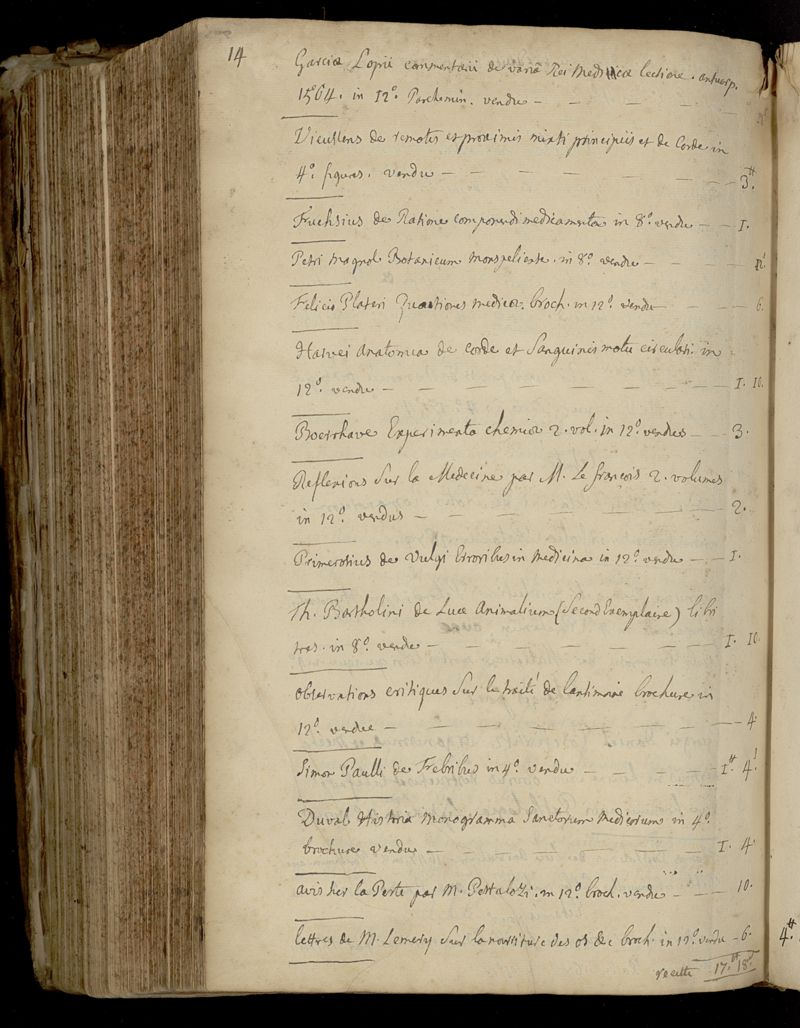 14
Garciæ Lopii commentarii de varia Rei Medicæ lectione. antuerp.
1564. in 12º. Parchemin. vendu —
Vieussens de remotis et proximis mixti principiis et de Corde in
4º. figures. vendu — 3.#
Fuchsius de Ratione componendi medicamenta in 8º. vendu — I.
Petri Magnol Botanicum monspeliense. in 8º. vendu —
Felicis Plateri Quæstiones medicæ. broch. in 12º. vendu — 6.
Harvei anatomica de corde et Sanguinis motu circulati. in
12º. vendu — I. 10.
Boerrhave Experimenta chemiæ 2. vol. in 12º. vendus — 3.
Reflexions Sur la Medecine par M. Le françois 2. volumes
in 12º. vendus — 2.
Primerosius de Vulgi Erroribus in medicina in 12º. vendu — I.
Th. Bartholini de Luce Animalium (Second Exemplaire) libri
tres. in 8º. vendu — I. 10.
observations critiques Sur le traité de Lantimoine brochure in
12º. vendue — 4
Simon Paulli de Febribus in 4º. vendu — I.# 4.s
Duval Historia Monogramma Sanctorum Medicorum in 4º.
brochure vendu — I. 4
avis sur la Peste par M. Pestalozi. in 12º. broch. vendu — 10.
lettres de M. Lemery Sur la nourriture des os &c broch. in 12º. vendu — 6.
recette 17.# 18.s
4.#